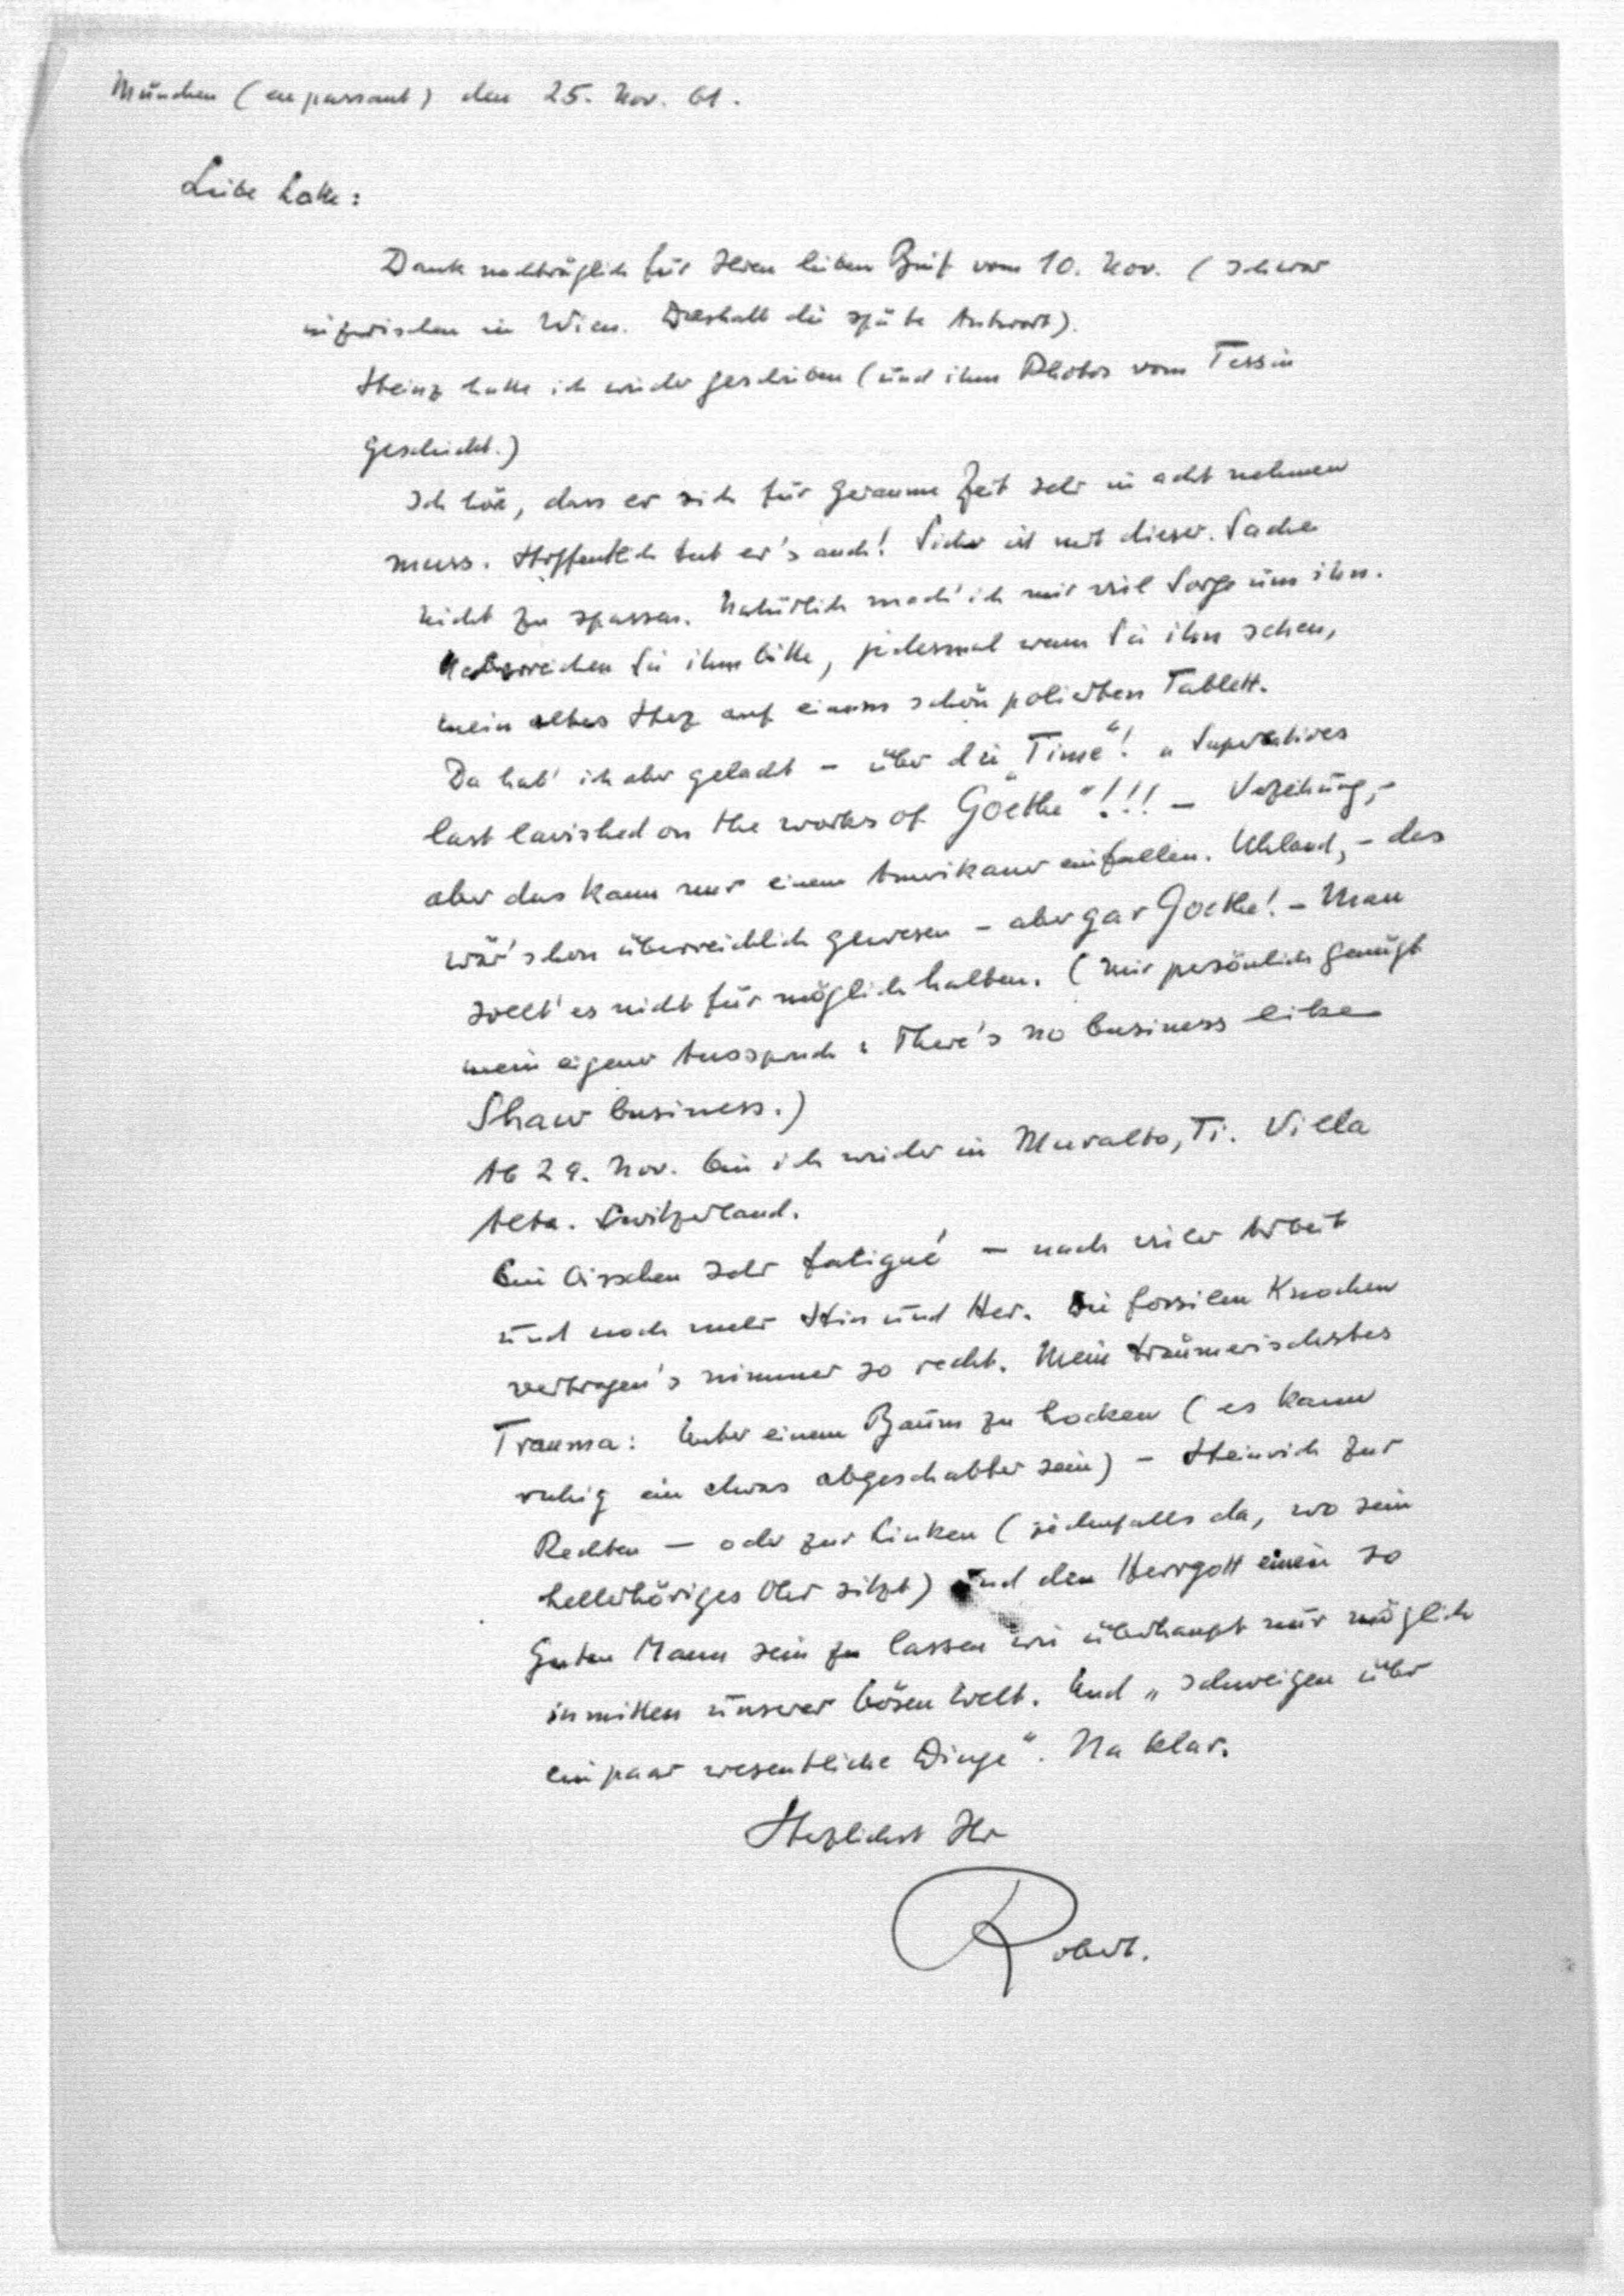 München (en passant) den 25. Nov. 61.
Liebe Lotte:
Dank nachträglich für Ihren lieben Brief vom 10. Nov. (Ich war
inzwischen in Wien. Deshalb die späte Antwort).
Heinz hatte ich wieder geschrieben (und ihm Photos vom Tessin
geschickt.)
Ich hör, dass er sich für geraume Zeit sehr in acht nehmen
muss. Hoffentlich tut er's auch! Sicher ist mit dieser Sache
nicht zu spassen. Natürlich mach' ich mir viel Sorge um ihn.
Ueberreichen Sie ihm bitte, jedesmal wenn Sie ihn sehen,
mein altes Herz auf einem schön polierten Tablett.
Da hab' ich aber gelacht – über die „Time“! „Superlatives
last lavished on the works of Goethe“!!! – Verzeihung, –
aber das kann nur einem Amerikaner einfallen. Uhland, – das
wär' schon überreichlich gewesen – aber gar Goethe! – Man
sollt' es nicht für möglich halten. (Mir persönlich genügt
mein eigener Ausspruch: There's no business like
Shaw business.)
Ab 29. Nov. bin ich wieder in Muralto, Ti. Villa
Alta. Switzerland.
Bin bisschen sehr fatigué – nach vieler Arbeit
und noch mehr Hin und Her. Die fossilen Knochen
vertragen's nimmer so recht. Mein träumerischstes
Trauma: Unter einem Baum zu hocken (es kann
ruhig ein etwas abgeschabter sein) – Heinrich zur
Rechten – oder zur Linken (jedenfalls da, wo sein
hellerhöriges Ohr sitzt) und den Herrgott einen so
guten Mann sein zu lassen wie überhaupt nur möglich
inmitten unserer bösen Welt. Und „schweigen über
ein paar wesentliche Dinge“. Na klar.
Herzlichst Ihr
Robert.